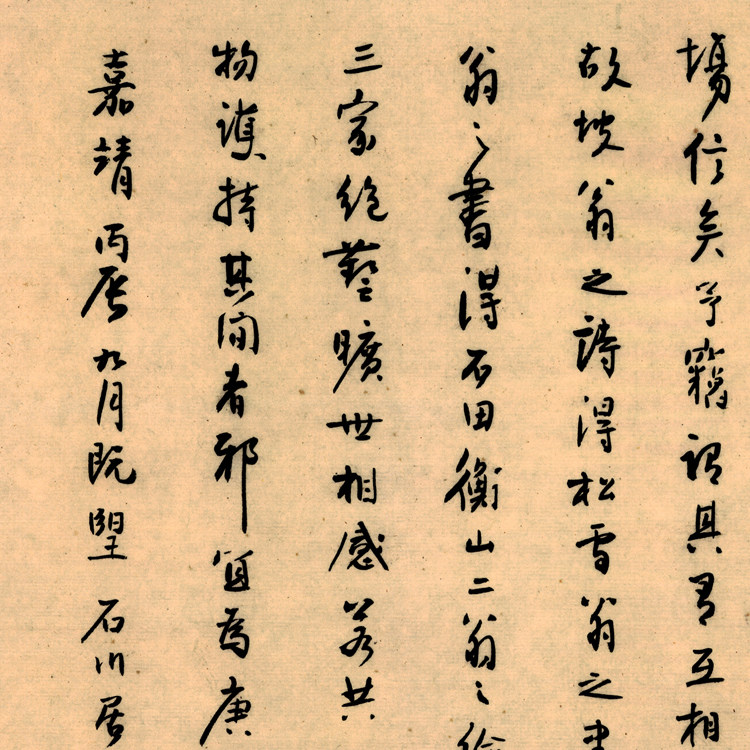 場信矣予竊謂其互相
故坡翁之詩得松雪翁之書
翁之書得石田衡山二翁之繪
三家絶藝曠世相感若共
物護持其間者邪宜為庚
嘉靖丙辰九月既望石川居